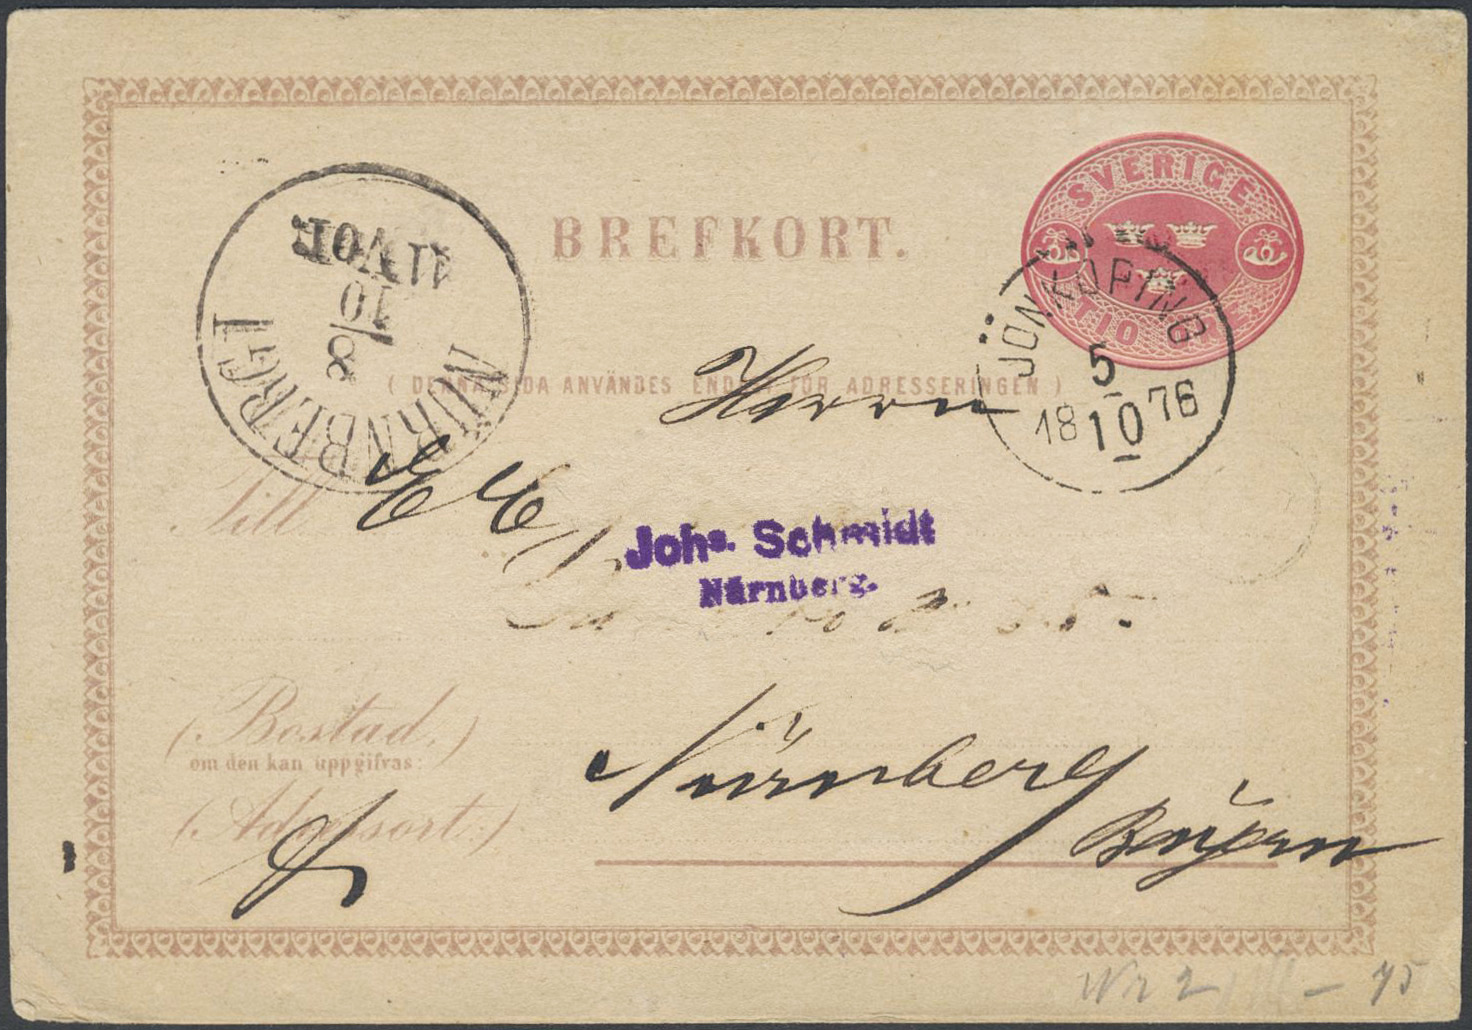 SVERIGE.
TIO
BREFKORT.
JÖNKÖPING
5
18 10 76
NÜRNBERG I
8/10
11 Vor.
(DENNA SIDA ANVÄNDES ENDAST FÖR ADRESSERINGEN)
Herrn
Till
Johs. Schmidt
Nürnberg.
(Bostad.)
om den kan uppgifvas:
Nürnberg
(Adressort.)
Bayern